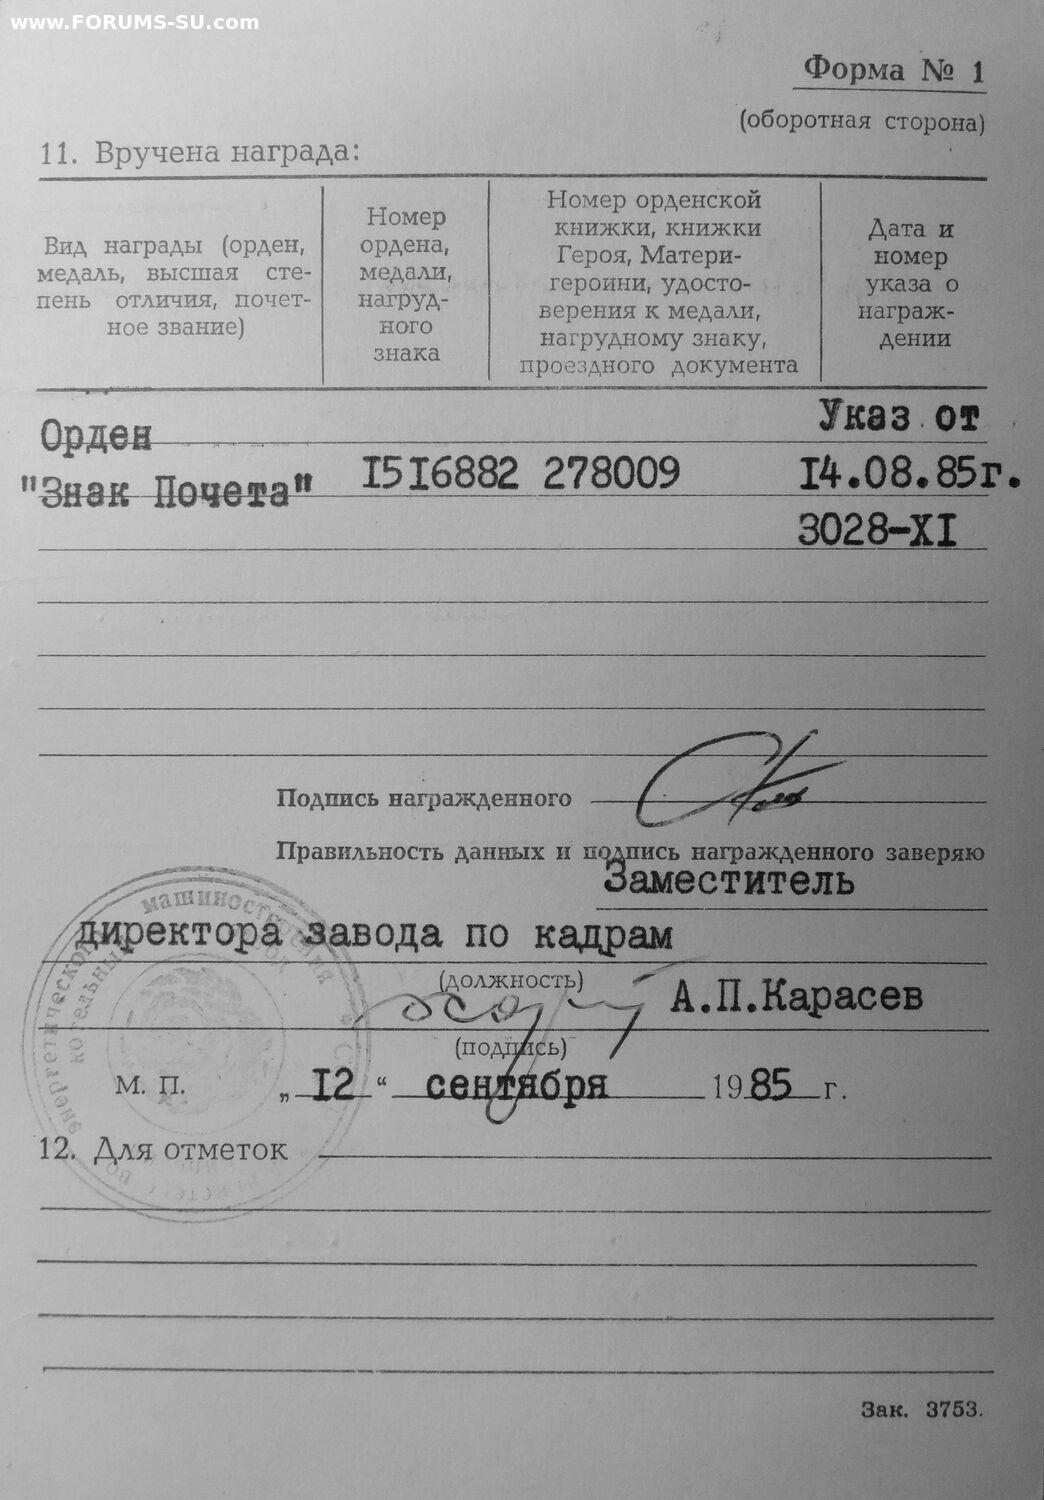 www.FORUMS-SU.com
Форма № 1
(оборотная сторона)
11. Вручена награда:
Вид награды (орден,
медаль, высшая сте-
пень отличия, почет-
ное звание)
Номер
ордена,
медали,
нагруд-
ного
знака
Номер орденской
книжки, книжки
Героя, Матери-
героини, удосто-
верения к медали,
нагрудному знаку,
проездного документа
Дата и
номер
указа о
награж-
дении
Орден
"Знак Почета"
I5I6882 278009
Указ от
I4.08.85г.
3028-XI
Подпись награжденного
Правильность данных и подпись награжденного заверяю
Заместитель
директора завода по кадрам
(должность)
А.П.Карасев
(подпись)
М. П. „ I2 “ сентября 1985 г.
12. Для отметок
энергетического машиностроения
котельный
Зак. 3753.